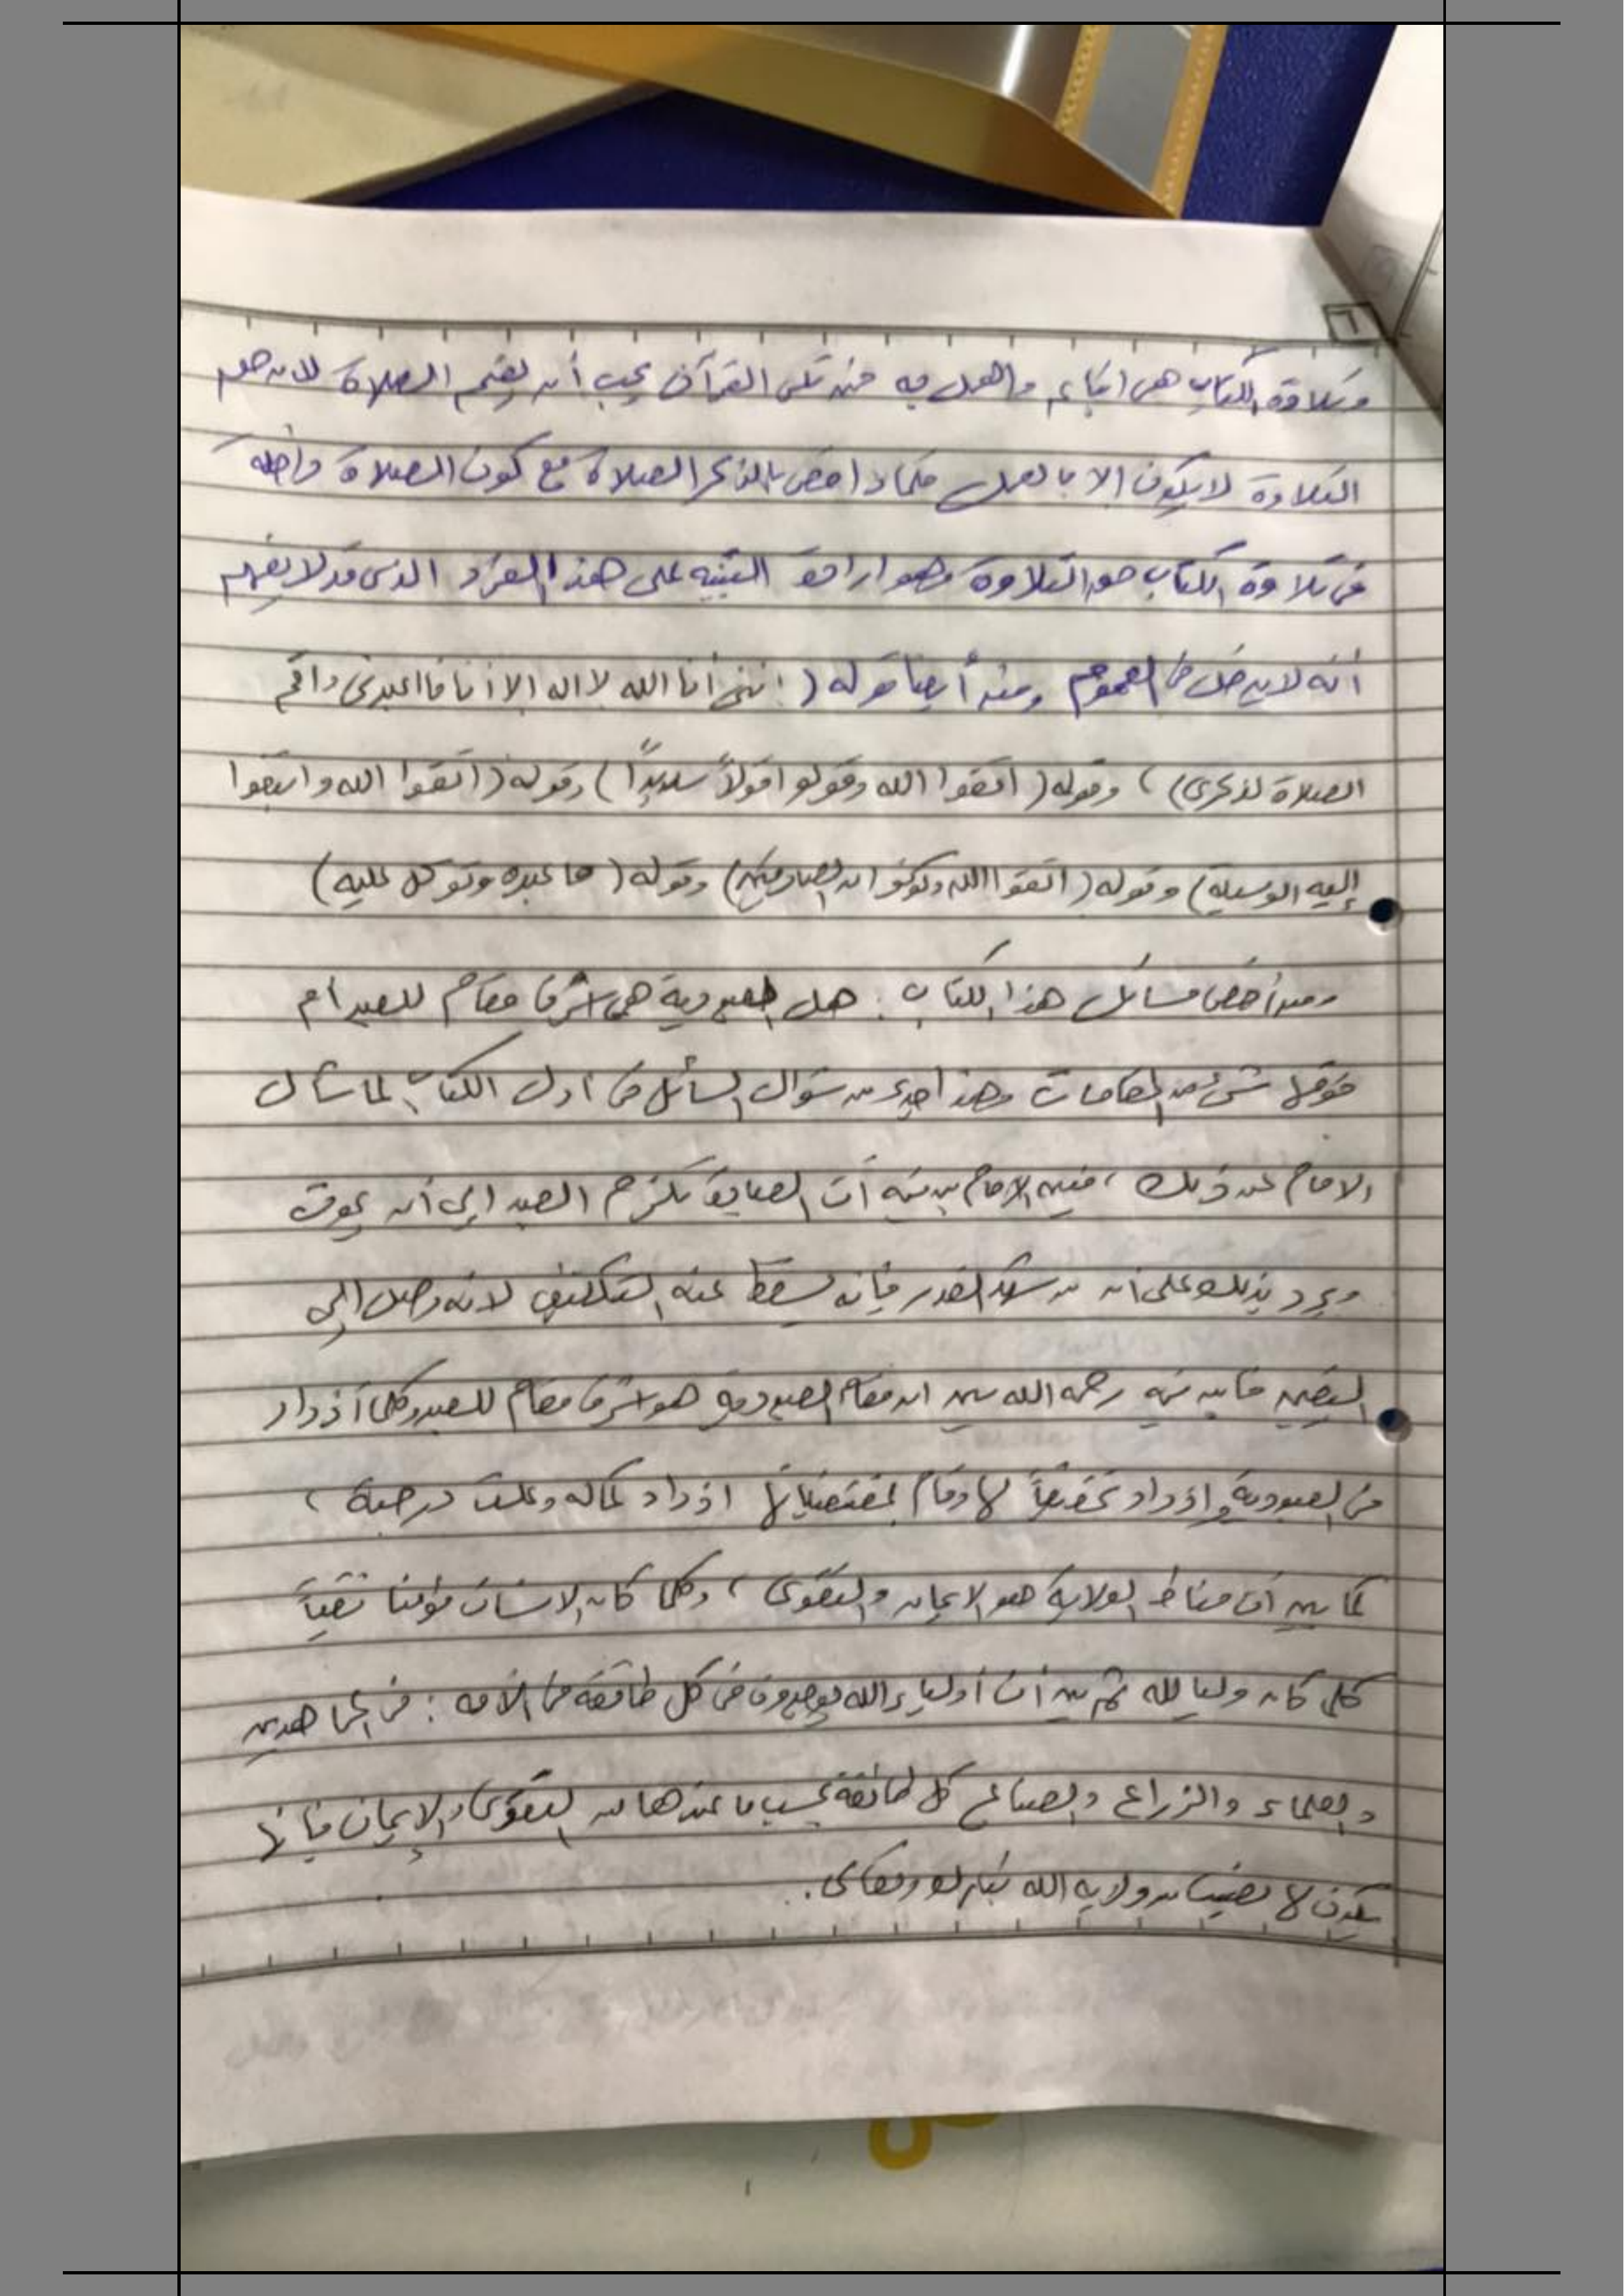 ٦
وتلاوة الكتاب هي اتباعه والعمل به فمن تلى القرآن يجب أن يقيم الصلاة لان
التلاوة لا يكون الا بالعمل فلماذا خص بالذكر الصلاة مع كون الصلاة داخله
في تلاوة الكتاب التلاوة وهو ارادة التنبيه على هذا الفرد الذي قد لا يفهم
أنه لا يدخل في العموم ومنه أيضا قوله ( إنني أنا الله لا اله الا أنا فاعبدني واقم
الصلاة لذكري) ، وقوله ( اتقوا الله وقولوا قولاً سديداً ) وقوله ( اتقوا الله وابتغوا
إليه الوسيلة) وقوله ( اتقوا الله وكونوا الصادقين) وقوله ( فاعبده وتوكل عليه)
ومن أخص مسائل هذا الكتاب : هل العبودية هي اشرف مقام للعبد أم
فوقها شيء من المقامات وهذا جزء من سؤال السائل في اول الكتاب لما سأل
الامام عن ذلك ، فبين الامام بن تيميه أن العبادة تلزم العبد الى أن يموت
ويرد بذلك على أن من شهد القدر فإنه يسقط عنه التكليف لانه وصل إلى
اليقين فابن تيميه رحمه الله يبين ان مقام العبودية هو اشرف مقام للعبد وكلما أزداد
من العبودية وازداد تحقيقاً لها وقام بمقتضياتها ازداد كماله وعلت درجته ،
كما بين أن مناط الولاية هو الايمان والتقوى ، وكلما كان الانسان مؤمنا تقياً
كلما كان وليا لله ثم بين أن أولياء الله يوجدون في كل طائفة من الامه : في المجاهدين
والعلماء والزراع والصناع كل طائفة بحسب ما عندها من التقوى والإيمان فإنها
يكون لها نصيب من ولاية الله تبارك وتعالى .